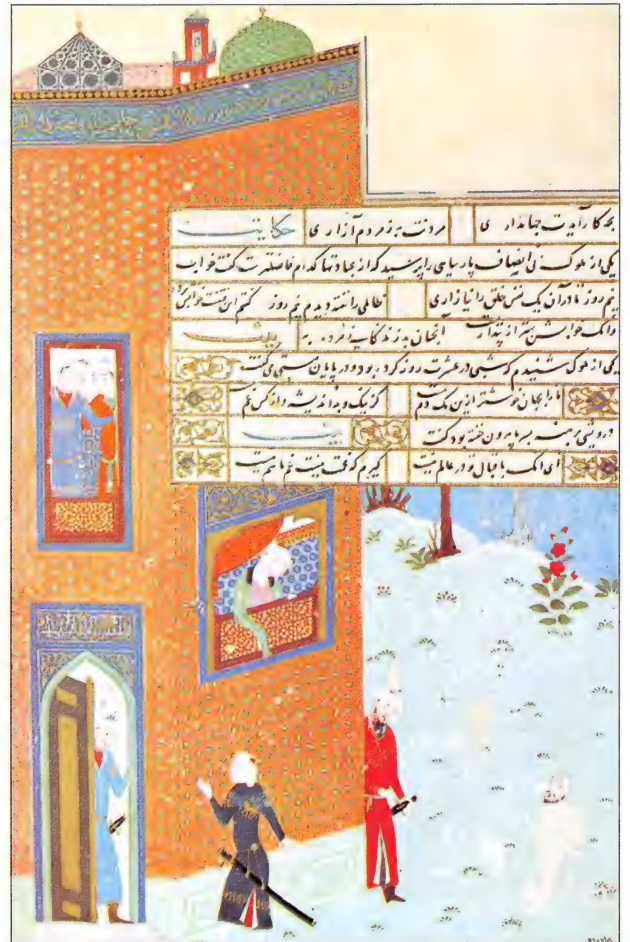 بچه کار آیدت جهانداری مردنت به ز مردم آزاری حکایت
یکی از ملوک بی انصاف پارسایی را پرسید که از عبادتها کدام فاضلترست گفت خواب
نیم روز تا در آن یک نفس خلق را نیازاری ظالمی را خفته دیدم نیم روز گفتم این فتنست خوابش
وانک خوابش بهتر از بیداریست آنچنان بد زندگانی مرده به
یکی از ملوک شنیدم که شبی در عشرت روز کرده بود و در پایان مستی می گفت
ما را بجهان خوشتر ازین یک دم نیست کز نیک و بد اندیشه و از کس غم نیست
درویشی برهنه بسرما برون خفته بود گفت بیت
ای آنک باقبال تو در عالم نیست گیرم که غمت نیست غم ما هم نیست